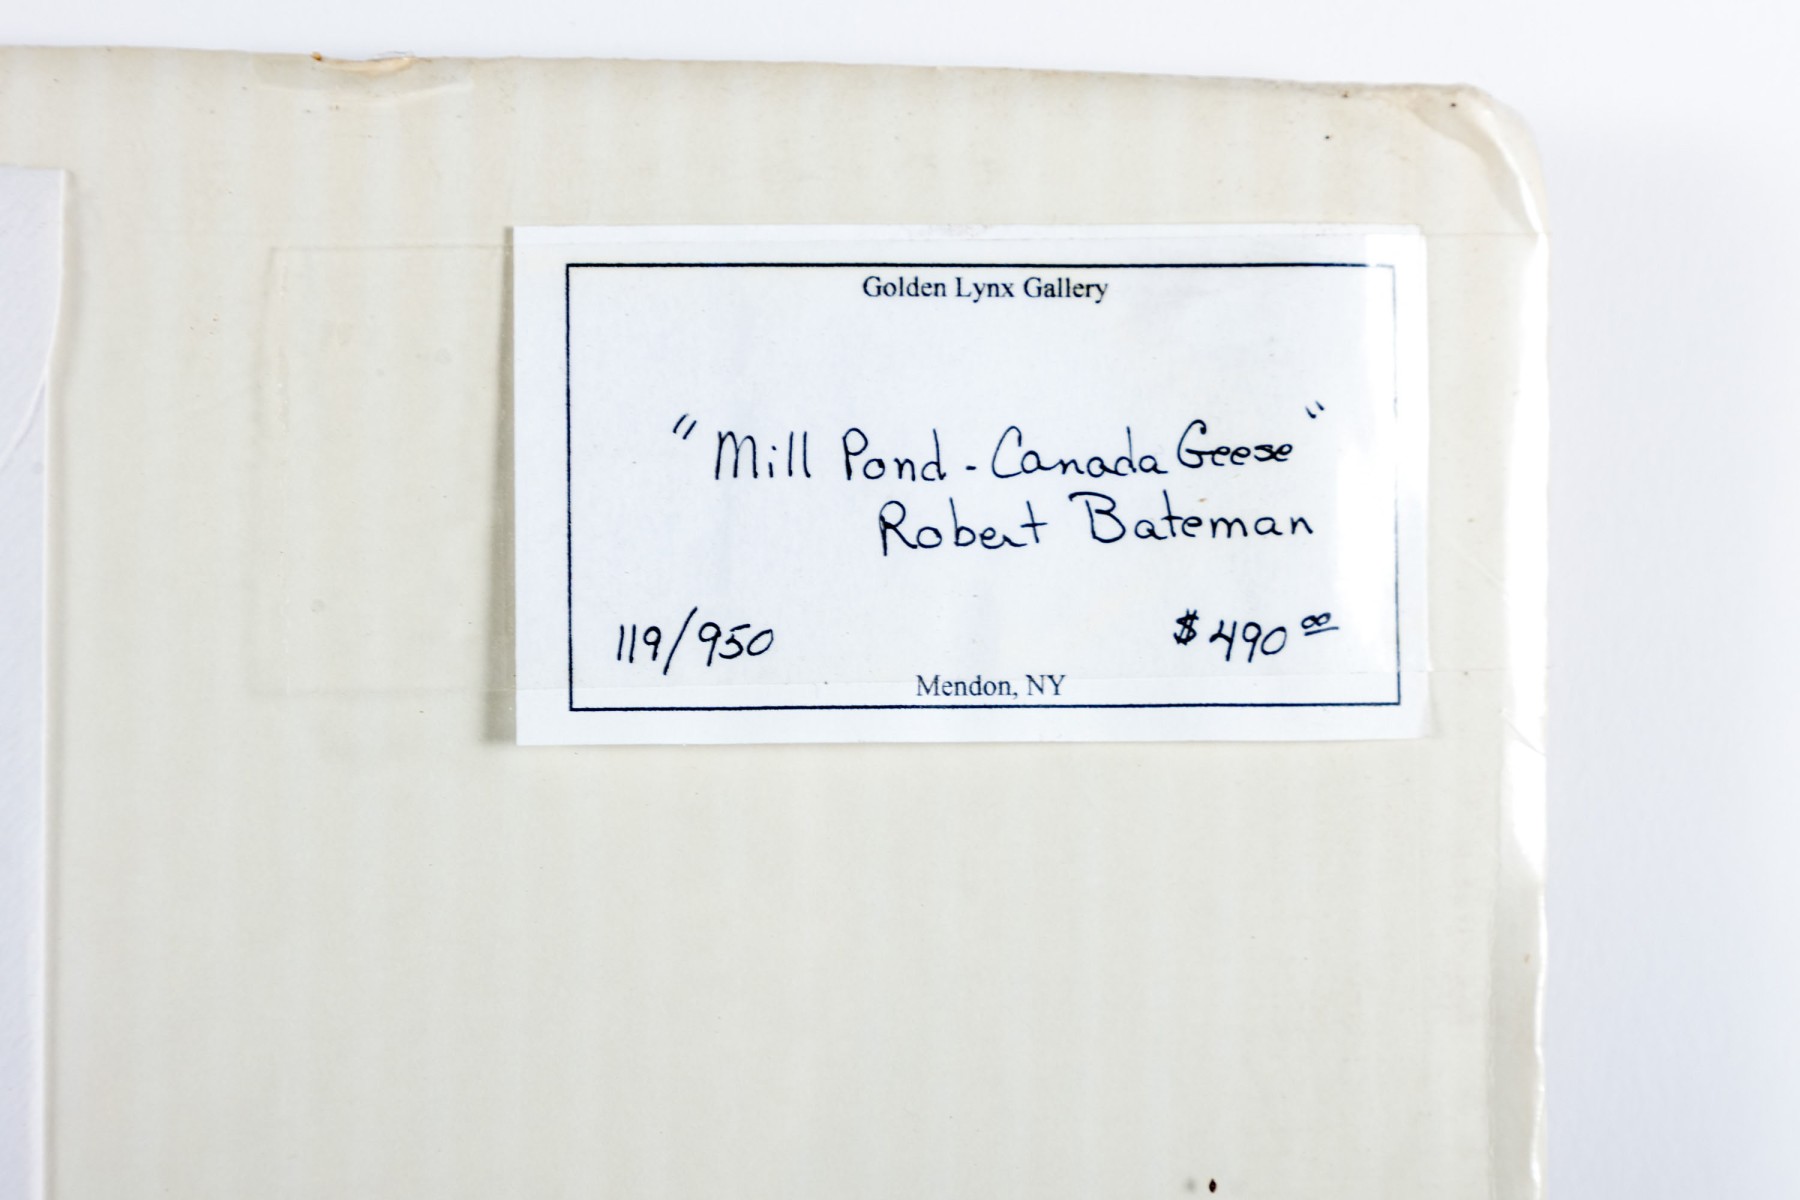 Golden Lynx Gallery
"Mill Pond - Canada Geese"
Robert Bateman
119/950 $490.00
Mendon, NY